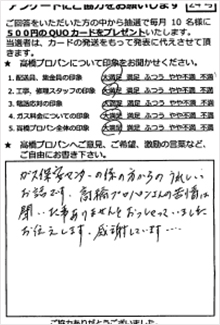 アンケートにご協力をお願いします
ご回答をいただいた方の中から抽選で毎月10名様に
500円のQUOカードをプレゼントいたします。
当選者は、カードの発送をもって発表に代えさせて頂
きます。
★ 高橋プロパンについて印象をお聞かせください。
1. 配送員、集金員の印象 大満足 満足 ふつう やや不満 不満
2. 工事、修理スタッフの印象 大満足 満足 ふつう やや不満 不満
3. 電話応対の印象 大満足 満足 ふつう やや不満 不満
4. ガス料金についての印象 大満足 満足 ふつう やや不満 不満
5. 高橋プロパン全体の印象 大満足 満足 ふつう やや不満 不満
★ 高橋プロパンへご意見、ご希望、激励の言葉など、
ご自由にお書き下さい。
ガス保安センターの係の方からのうれしい
お話です。高橋プロパンさんの苦情は
聞いた事ありませんとおっしゃっていました
お伝えします。感謝しています…
ご協力ありがとうございました。